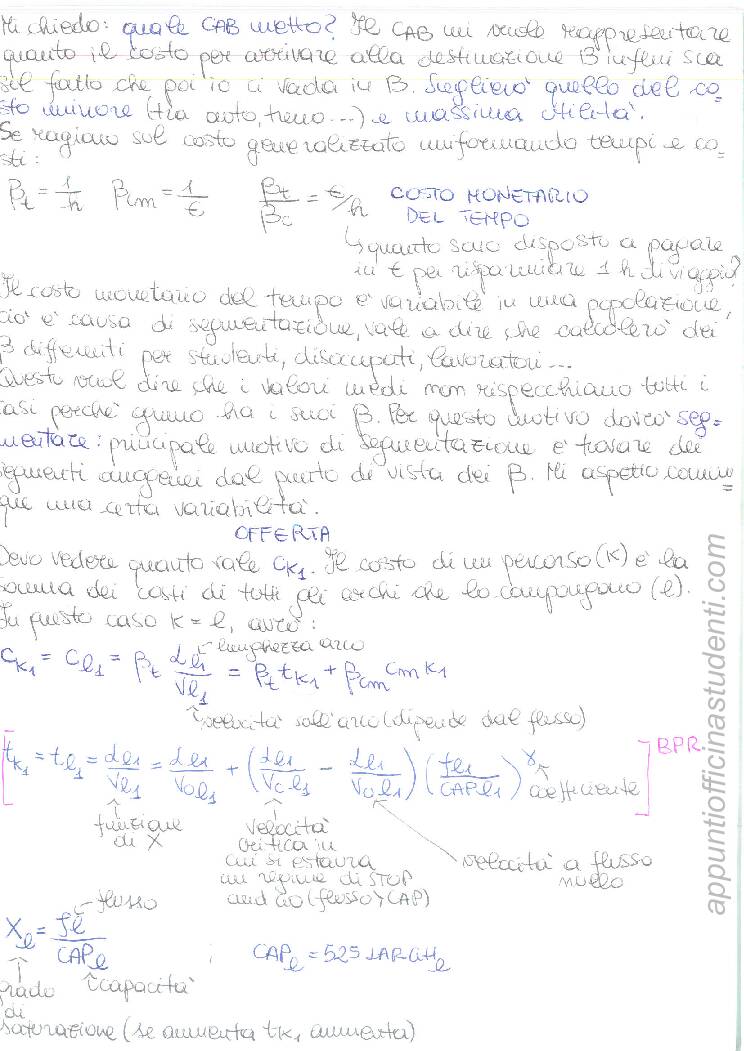 Mi chiedo: quale CAB metto? Il CAB mi vuole rappresentare
quanto il costo per arrivare alla destinazione B influisca
sul fatto che poi io ci vada in B. Sceglierò quello del co-
sto minore (tra auto, treno...) e massima utilità.
Se ragiono sul costo generalizzato uniformando tempi e co-
sti:
βt = 1/h βcm = 1/€ βt/βc = €/h COSTO MONETARIO
DEL TEMPO
↳ quanto sono disposto a pagare
in € per risparmiare 1 h di viaggio?
Il costo monetario del tempo è variabile in una popolazione,
ciò è causa di segmentazione, vale a dire che calcolerò dei
β differenti per studenti, disoccupati, lavoratori...
Questo vuol dire che i valori medi non rispecchiano tutti i
casi perchè ognuno ha i suoi β. Per questo motivo dovrò seg-
mentare: principale motivo di segmentazione è trovare dei
segmenti omogenei dal punto di vista dei β. Mi aspetto comun-
que una certa variabilità.
OFFERTA
Devo vedere quanto vale CK1. Il costo di un percorso (K) è la
somma dei costi di tutti gli archi che lo compongono (l).
In questo caso K = l, avrò:
lunghezza arco
CK1 = Cl1 = βt Ll1/Vl1 = βt tK1 + βcm Cm K1
velocità sull'arco (dipende dal flusso)
tK1 = tl1 = Ll1/Vl1 = Ll1/V0l1 + (Ll1/VCl1 - Ll1/V0l1) (fl1/CAPl1)^γ coefficiente BPR
funzione
di X
velocità
critica in
cui si instaura
un regime di STOP
and GO (flusso > CAP)
velocità a flusso
nullo
flusso
Xl = fl/CAPl ; CAPl = 525 LARGHl
capacità
grado
di
saturazione (se aumenta tK1 aumenta)
appuntiofficinastudenti.com